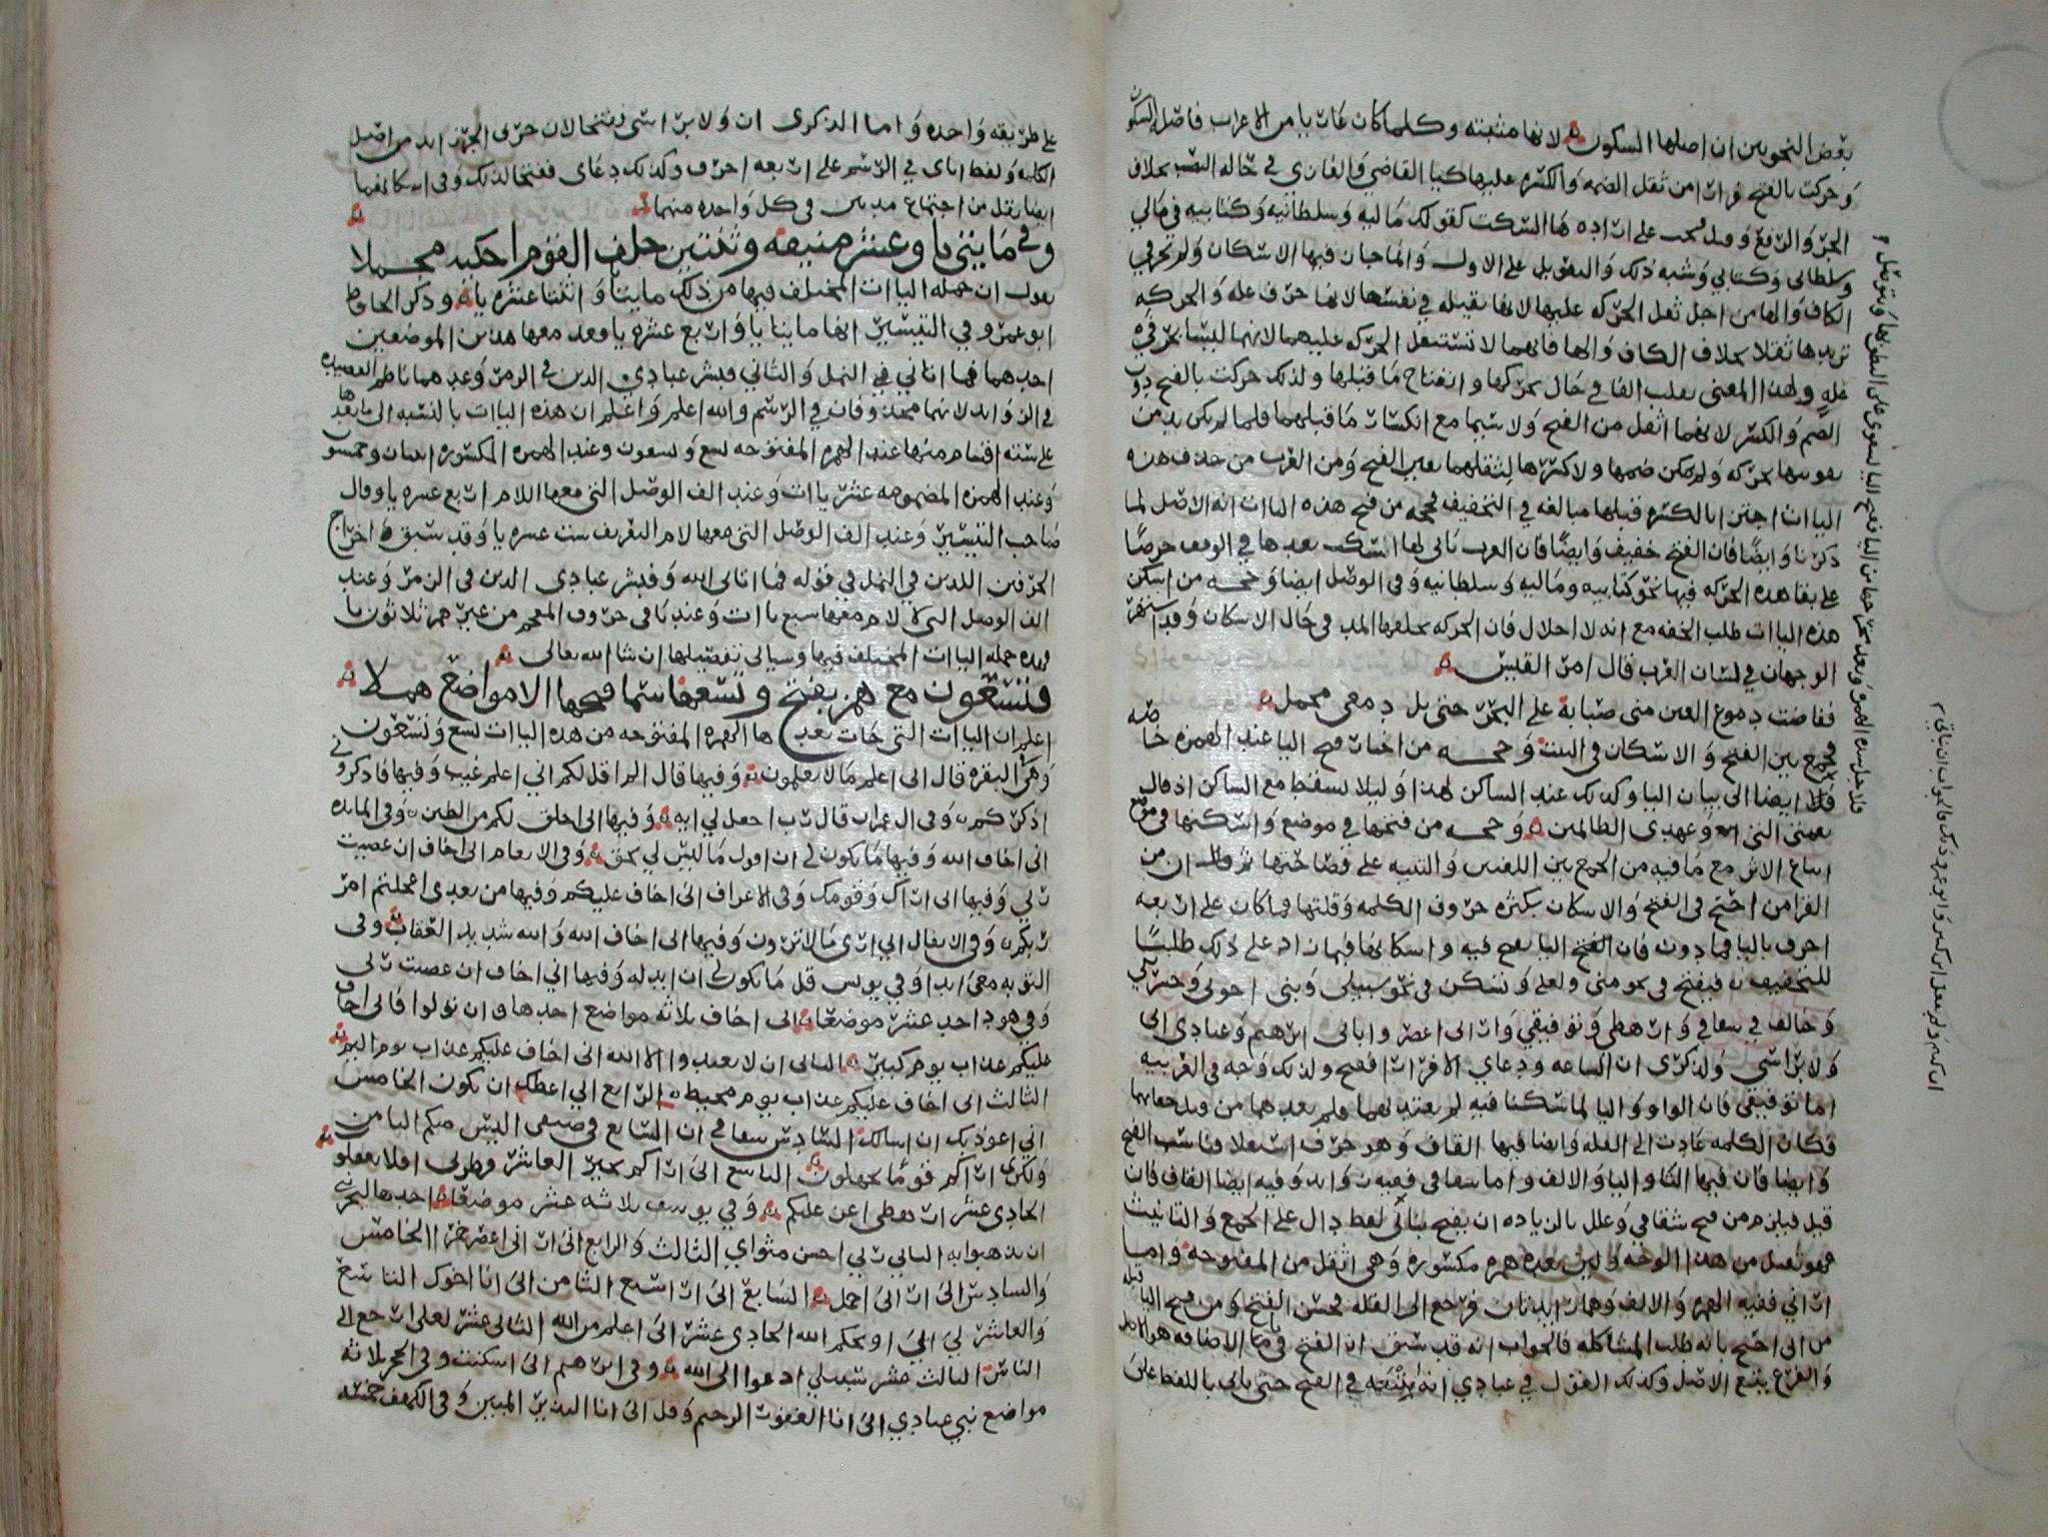 بعض النحويين ان اصلها السكون لانها مبنيه وكلما كان عاريا من الاعراب فاصله السكون
وحركت بالفتح فرارا من ثقل الضمه والكسره عليها كيا القاضي والغازي في حاله النصب بخلاف
الجر والرفع وقيل فتحت على ارادة ها السكت كقولك ماليه وسلطانيه وكتابيه في مالي
وسلطاني وكتابي وشبه ذلك والتعويل على الاول والما جاز فيها الاسكان ولم تحر في
الكاف والها من اجل ثقل الحركه عليها لانها ثقيله في نفسها لانها حرف عله والحركه
تزيدها ثقلا بخلاف الكاف والها فانهما لا تستثقل الحركه عليهما لانهما ليسا بحرفي
عله ولهذا المعنى تقلب الفا في حال تحركها وانفتاح ما قبلها ولذلك حركت بالفتح دون
الضم والكسر لانهما اثقل من الفتح ولا سيما مع انكسار ما قبلهما فلما لم يكن بد من
تقويتها بحركه ولم يمكن ضمها ولا كسرها لثقلهما تعين الفتح ومن العرب من حذف هذه
الياات اجتزا بالكسره قبلها مبالغه في التخفيف فحجه من فتح هذه الياات انه الاصل لما
ذكرنا وايضا فان الفتح خفيف وايضا فان العرب تاتي بها السكت بعدها في الوقف حرصا
على بقا هذه الحركه فيها نحو كتابيه وماليه وسلطانيه وفي الوصل ايضا وحجه من اسكن
هذه الياات طلب الخفه مع انه لا اخلال فان الحركه يخلفها المد في حال الاسكان وقد اشتهر
الوجهان في لسان العرب قال امر القيس
ففاضت دموع العين مني صبابة على النحر حتى بل دمعي محملي
فجمع بين الفتح والاسكان في البيت وحجه من اختار فتح اليا عند الهمزه خاصه
فلا ايضا الى بيان اليا وكذلك عند الساكن لهذا وليلا تسقط مع الساكن اذ قال
نعمتي التي وعهدي الظالمين وحجه من فتحها في موضع واسكنها في موضع
اتباع الاثر مع ما فيه من الجمع بين اللغتين والتنبيه على فصاحتها ثم قال ان من
القرا من احتج في الفتح والاسكان بكثره حروف الكلمه وقلتها فما كان على اربعه
احرف باليا فما دون فان الفتح اليا يفتح فيه واسكانها فيما زاد على ذلك طلبا
للتخفيف فيفتح في نحو مني ولعلي وتسكن في نحو سبيلي وبني اخوتي وحشرتني
وخالف في شقاقي وارهطي وتوفيقي واراني اعصر واباي ابرهيم وعبادي اني
ولابي اشي ولذكرى ان الساعه ودعاي الا فرارا ففتح ولذلك وجه في العربيه
اما توفيقي فان الواو واليا لما سكنا فيه لم يعتد بهما ولم يعدهما من
فكان الكلمه عادت الى القله وايضا فيها القاف وهو حرف استعلا فناسب الفتح
وايضا فان فيها التا واليا والالف واما شقاقي ففيه زوايد وفيه ايضا القاف فان
قيل فيلزم من فتح شقاقي وعلل بالزياده ان يفتح بناتي لفظ دال على الجمع والتانيث
فهو ثقيل من هذا الوجه وليس بعده همزه مكسوره وهي اثقل من المفتوحه واما
اراني ففيه الهمزه والالف وهما زايدتان فرجع الى القله فحسن الفتح ومن فتح اليا قبله
من اني احتج بانه طلب المشاكله فالجواب انه قد سبق ان الفتح في يا الاضافه هو الاصل
والفرع يتبع الاصل وكذلك القول في عبادي انه يتبعه في الفتح حتى ياتي باللفظ على
على طريقه واحده واما الذكرى ان ولابي اشي ففتحا لان حرف الجر زايد من اصل
الكلمه ولفظ اباي في الرسم على اربعه احرف وكذلك دعاي ففتحا لذلك وفي اسكانها
ايضا ثقل من اجتماع مدتين في كل واحده منهما
وفي مايتي يا وعشر منيفه وثنتين خلف القوم احكيه مجملا
يقول ان جمله الياات المختلف فيها من ذلك مايتا واثنتا عشره يا وذكر الحافظ
ابو عمرو في التيسير انها مايتا يا واربع عشره يا فعد معها هذين الموضعين
احدهما فما اتاني في النمل والثاني فبشر عبادي الذين في الزمر وعدهما ناظم القصيده
في الزوايد لانهما محذوفان في الرسم والله اعلم واعلم ان هذه الياات بالنسبه الى ما بعدها
على سته اقسام منها عند الهمزه المفتوحه تسع وتسعون وعند الهمزه المكسوره اثنتان وخمسون
وعند الهمزه المضمومه عشر ياات وعند الف الوصل التي معها اللام اربع عشره يا وقال
صاحب التيسير وعند الف الوصل التي معها لام التعريف ست عشره يا وقد سبق اخراج
الحرفين اللذين في النمل في قوله فما اتاني الله وفبشر عبادي الذين في الزمر وعند
الف الوصل التي لا لام معها سبع ياات وعند باقي حروف المعجم من غير همز ثلاثون يا
فهذه جمله الياات المختلف فيها وسياتي تفصيلها ان شا الله تعالى
فتسعون مع همز بفتح وتسعها سما فتحها الا مواضع هملا
اعلم ان الياات التي جات بعدها الهمزه المفتوحه من هذه الياات تسع وتسعون
وهي البقره قال اني اعلم ما لا تعلمون وفيها قال الم اقل لكم اني اعلم غيب وفيها فاذكروني
اذكركم وفي ال عمران قال رب اجعل لي ايه وفيها اني اخلق لكم من الطين وفي المايده
اني اخاف الله وفيها ما يكون لي ان اقول ما ليس لي بحق وفي الانعام اني اخاف ان عصيت
ربي وفيها اني اراك وقومك وفي الاعراف اني اخاف عليكم وفيها من بعدي اعجلتم امر
ربكم وفي الانفال اني ارى ما لا ترون وفيها اني اخاف الله والله شديد العقاب وفي
التوبه معي ابدا وفي يونس قل ما يكون لي ان ابدله وفيها اني اخاف ان عصيت ربي
وفي هود احد عشر موضعا اني اخاف ثلاثه مواضع احدها وان تولوا فاني اخاف
عليكم عذاب يوم كبير الثاني ان لا تعبدوا الا الله اني اخاف عليكم عذاب يوم اليم
الثالث اني اخاف عليكم عذاب يوم محيط الرابع اني اعظك ان تكون الخامس
اني اعوذ بك ان اسالك السادس شقاقي ان السابع في ضيفي اليس منكم الثامن
ولكني اراكم قوما تجهلون التاسع اني اراكم بخير العاشر فطرني افلا تعقلون
الحادي عشر ارهطي اعز عليكم وفي يوسف ثلاثه عشر موضعا احدها ليحزنني
ان تذهبوا به الثاني ربي احسن مثواي الثالث والرابع اني اراني اعصر خمرا الخامس
والسادس اني اراني احمل السابع اني ارى سبع الثامن اني انا اخوك التاسع
والعاشر لي ابي او يحكم الله الحادي عشر اني اعلم من الله الثاني عشر لعلي ارجع الى
الناس الثالث عشر سبيلي ادعوا الى الله وفي ابرهيم اني اسكنت وفي الحجر ثلاثه
مواضع نبي عبادي اني انا الغفور الرحيم وقل اني انا النذير المبين وفي الكهف خمسه